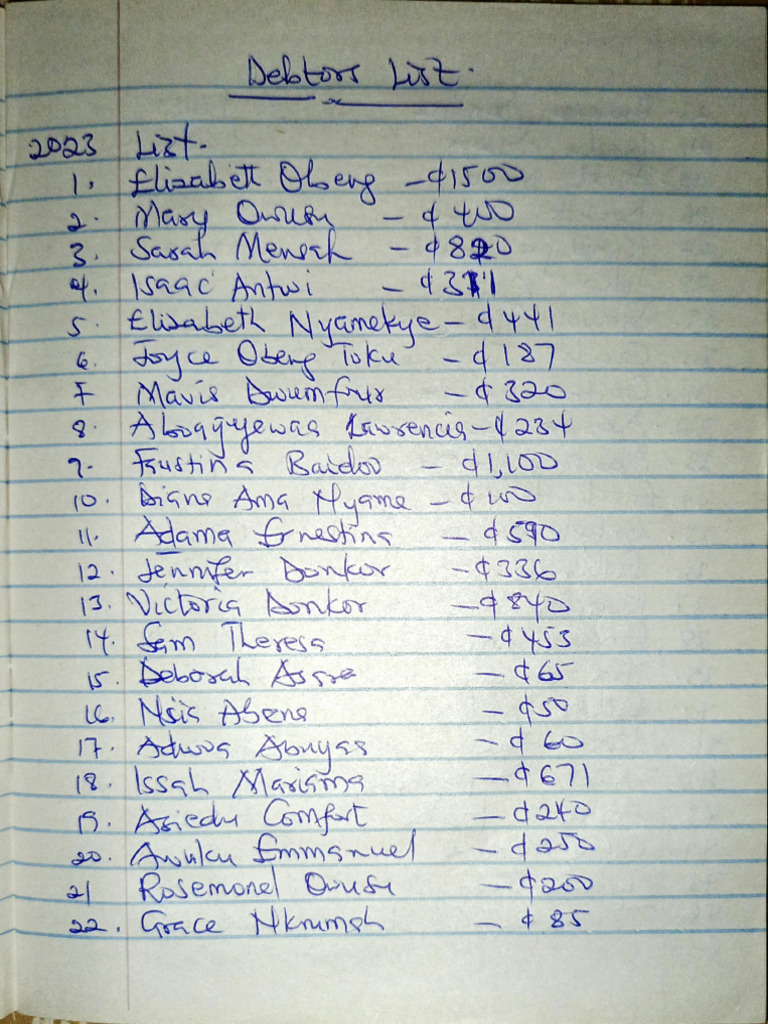 Debtors List.
2023 List.
1. Elizabeth Obeng - ¢1500
2. Mary Owusu - ¢400
3. Sarah Mensah - ¢820
4. Isaac Antwi - ¢311
5. Elizabeth Nyamekye - ¢441
6. Joyce Obeng Toku - ¢187
7 Mavis Dwumfour - ¢320
8. Aboagyewaa Lawrencia - ¢234
9. Faustina Baidoo - ¢1,100
10. Diana Ama Nyame - ¢100
11. Adama Ernestina - ¢590
12. Jennifer Donkor - ¢336
13. Victoria Donkor - ¢840
14. Sam Theresa - ¢453
15. Deborah Asare - ¢65
16. Abena - ¢50
17. Adwoa - ¢60
18. Issah Mariama - ¢671
19. Asiedu Comfort - ¢240
20. Awuku Emmanuel - ¢250
21 Rosemond Owusu - ¢200
22. Grace Nkrumah - ¢85